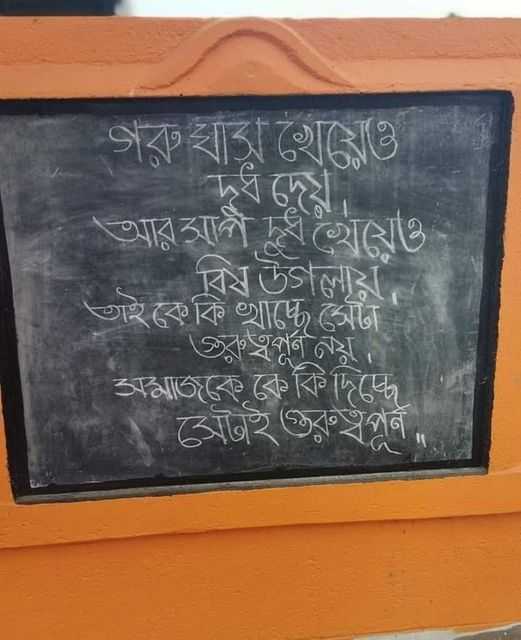 গরু ঘাস খেয়েও
দুধ দেয়।
আর সাপ দুধ খেয়েও
বিষ উগলায়।
তাই কে কি খাচ্ছে সেটা
গুরুত্বপূর্ণ নয়।
সমাজকে কে কি দিচ্ছে
সেটাই গুরুত্বপূর্ণ॥